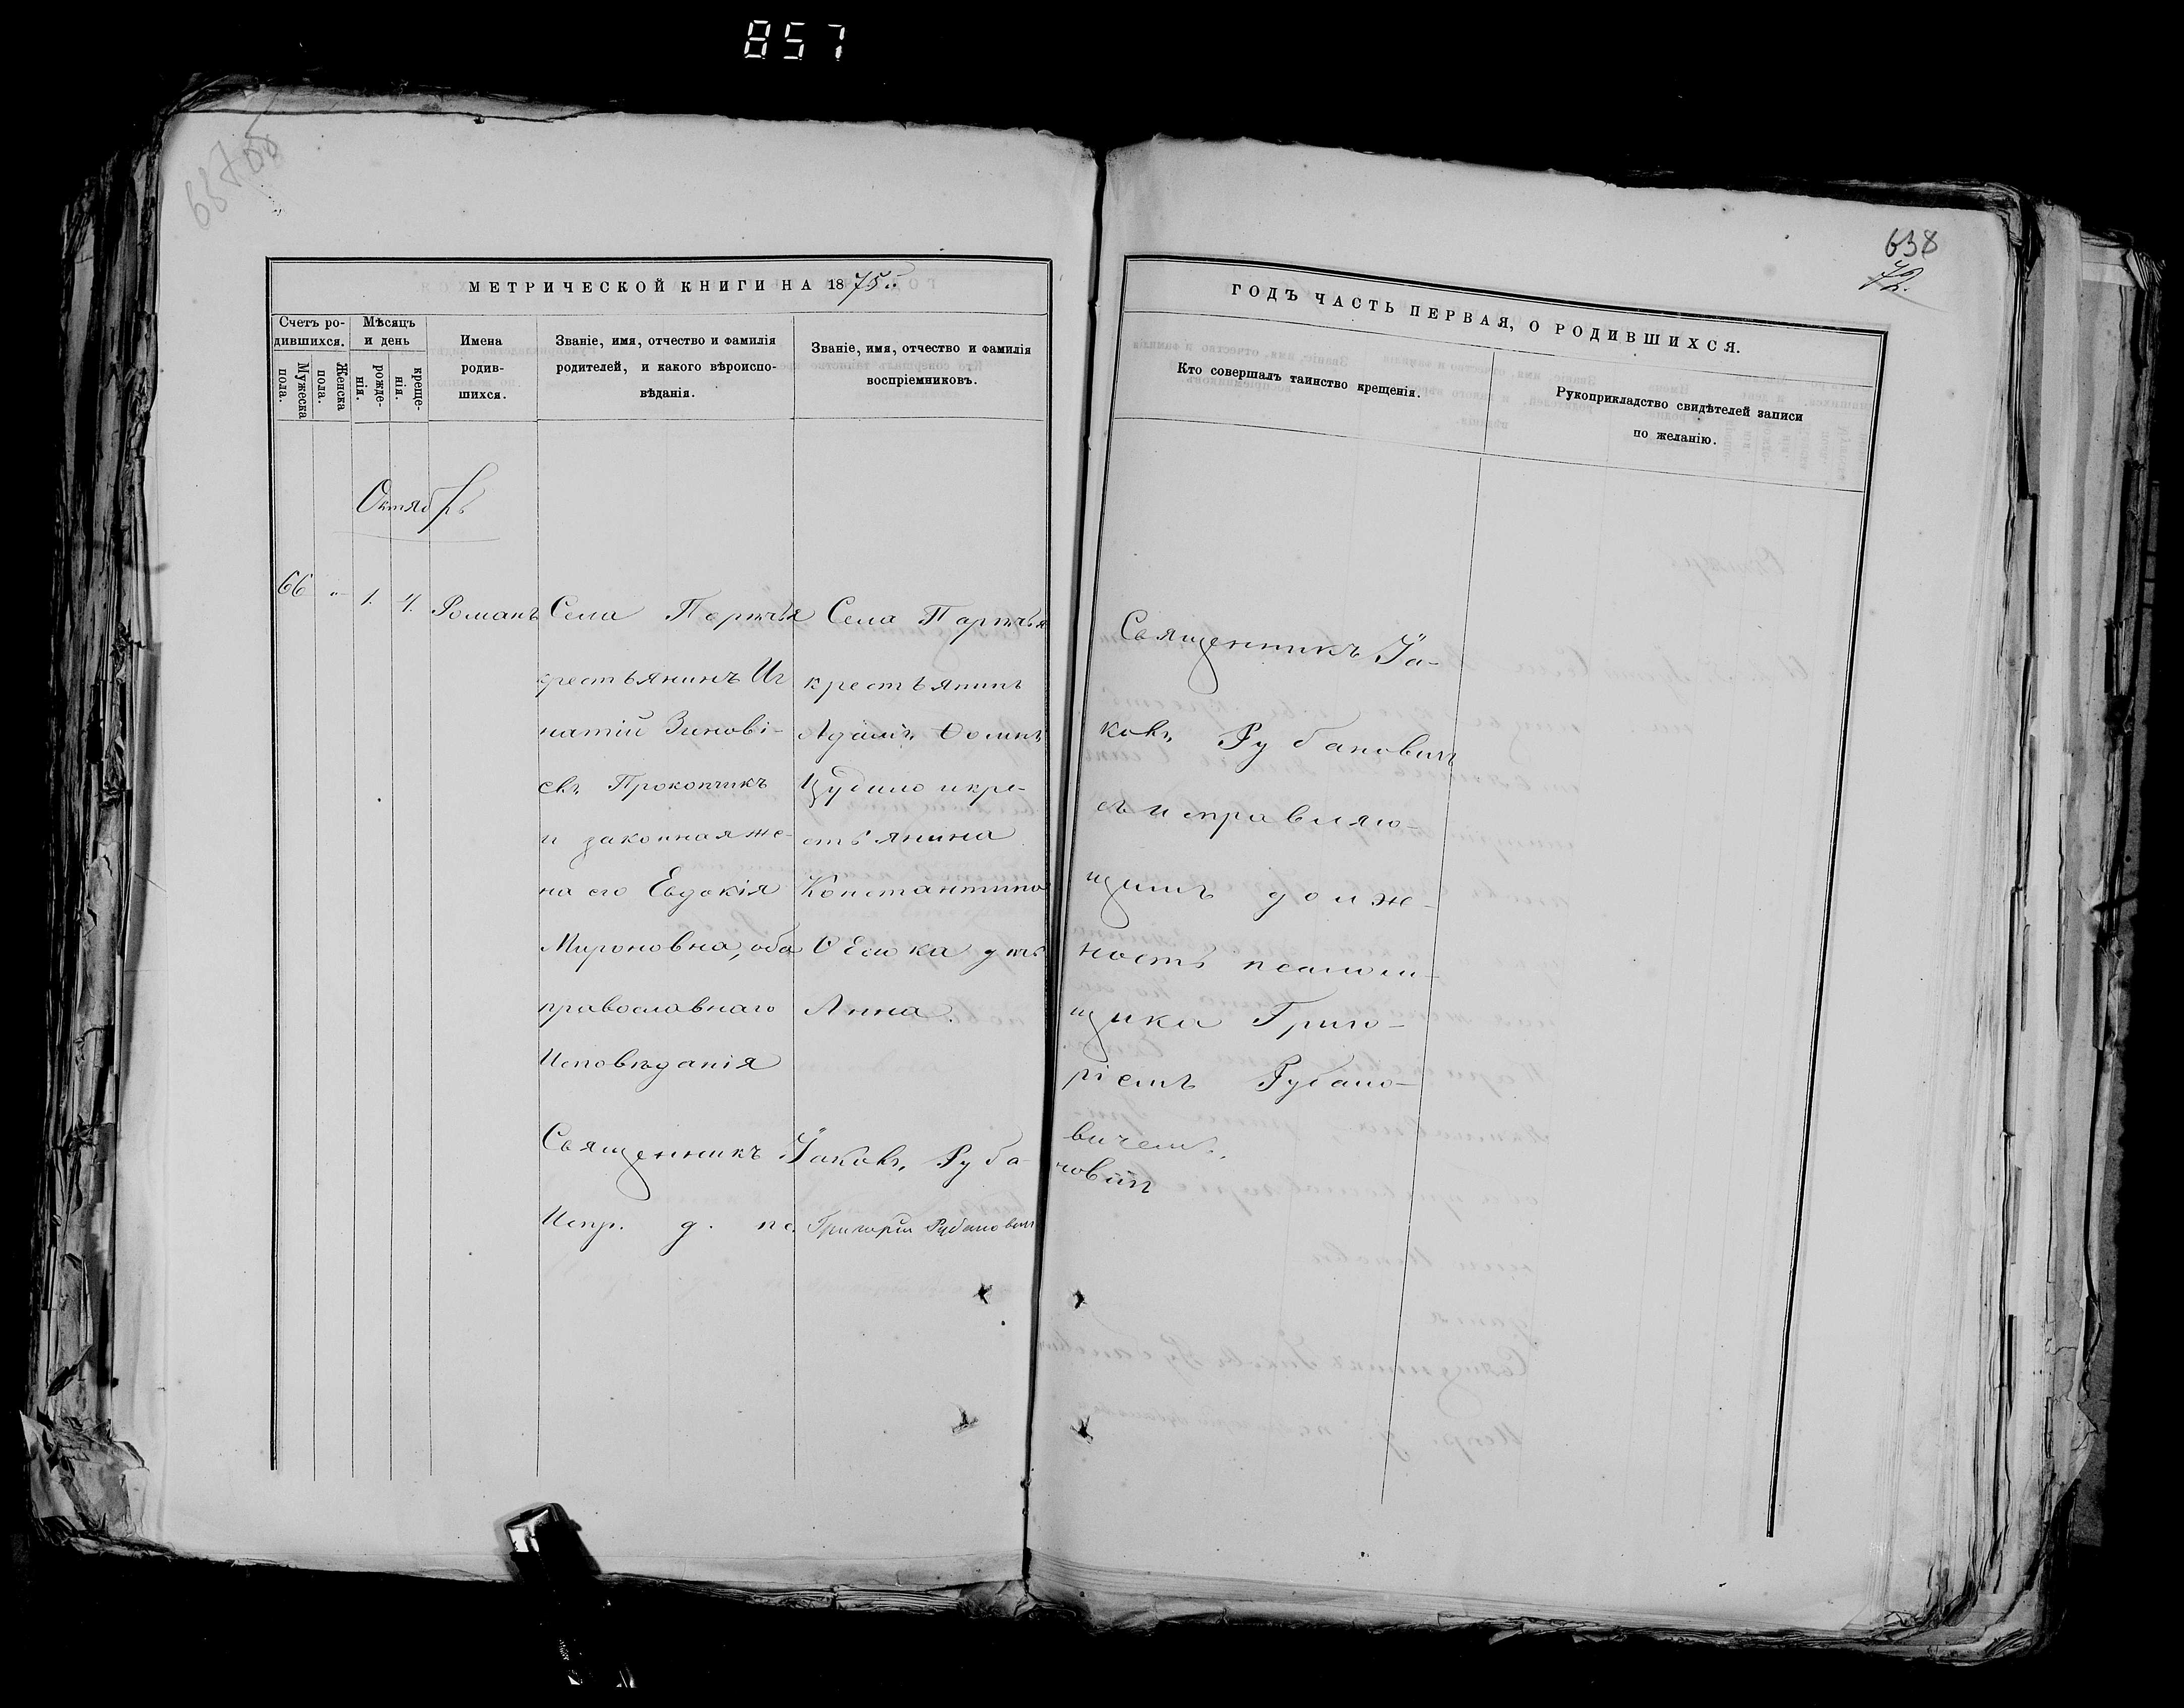 857
638
72.
МЕТРИЧЕСКОЙ КНИГИ НА 1875
ГОДЪ ЧАСТЬ ПЕРВАЯ, О РОДИВШИХСЯ.
Счетъ ро-
дившихся.
Мужеска
пола.
Женска
пола.
Мѣсяцъ
и день
рожде-
нія.
креще-
нія.
Имена
родив-
шихся.
Званіе, имя, отчество и фамилія
родителей, и какого вѣроиспо-
вѣданія.
Званіе, имя, отчество и фамилія
воспріемниковъ.
Кто совершалъ таинство крещенія.
Рукоприкладство свидѣтелей записи
по желанію.
Октябрь
66 „ 1. 4. Романъ
Села
крестьянинъ Иг
натій Зинові-
евъ Прокопчикъ
и законная же-
на его Евдокія
Мироновна, оба
православнаго
Исповѣданія
Села
крестьянинъ
Адамъ
и кре-
стьянина
Константина
Анна.
Священникъ Іа-
ковъ Рубановичъ
съ исправляю-
щимъ долж-
ность псаломщ-
щика Григо-
ріемъ Рубано-
вичемъ.
Священникъ Іаковъ Руба-
новичъ
Испр. д. пс. Григорій Рубановичъ